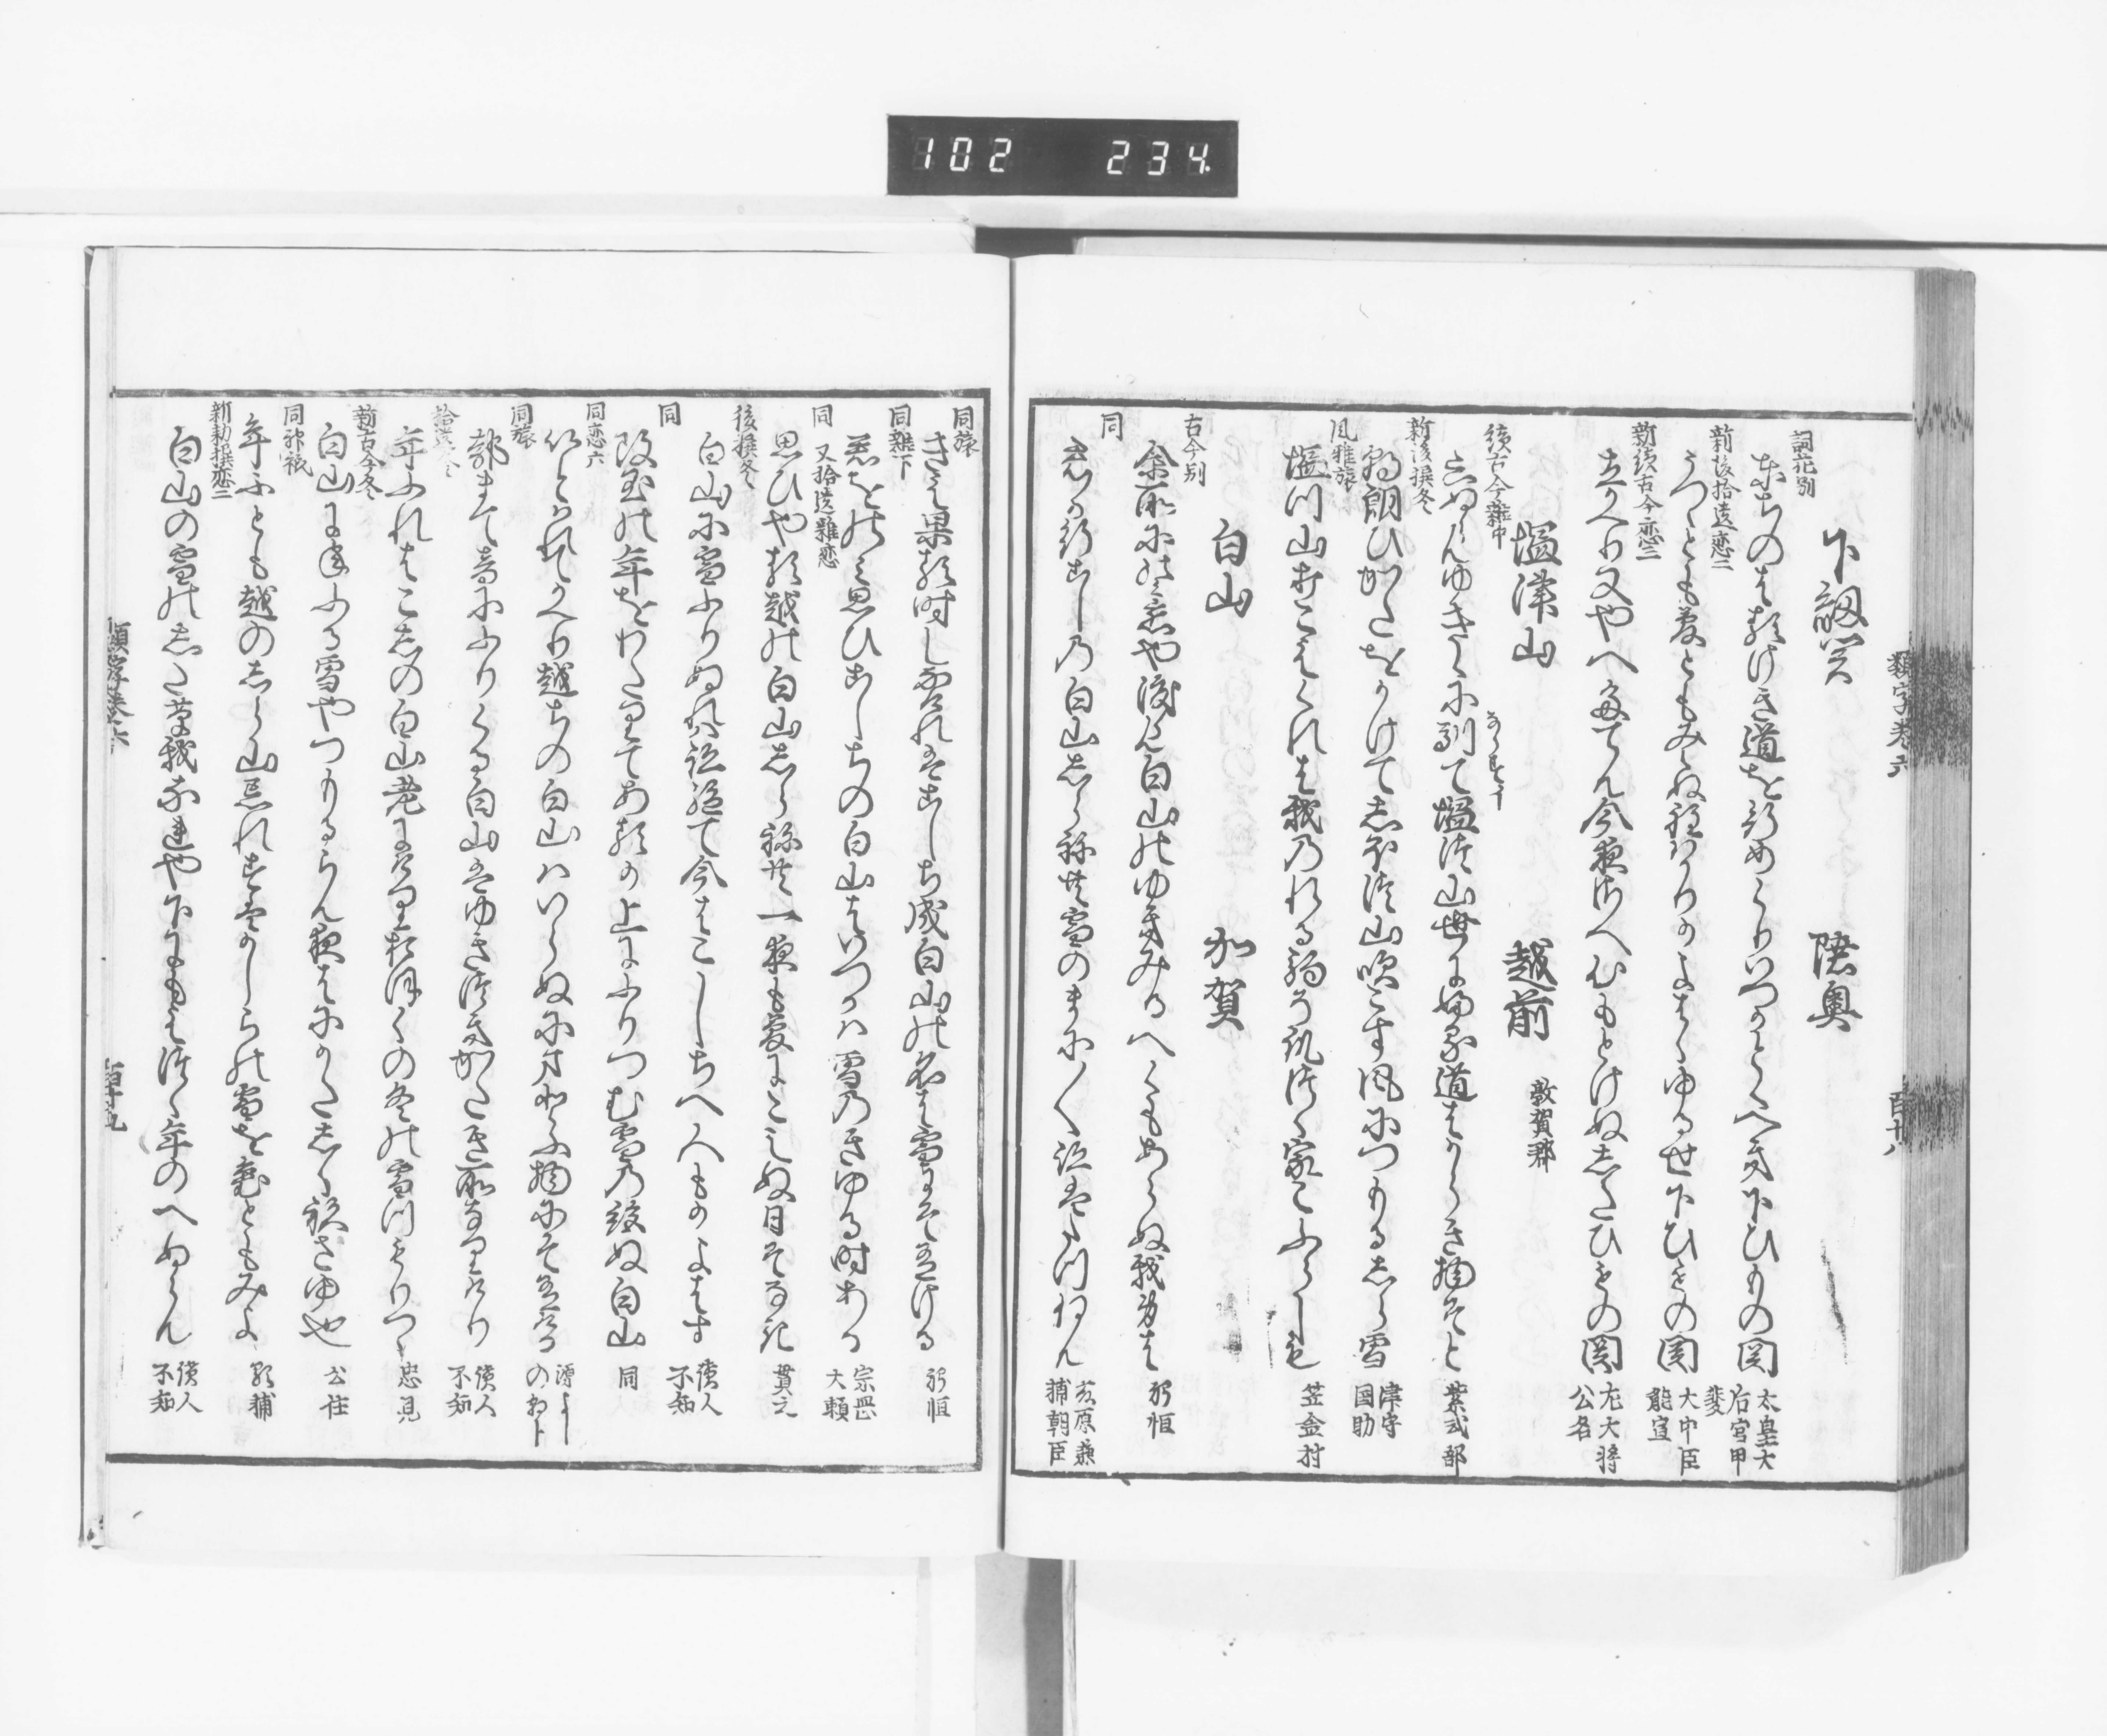 102 234
類字巻六
百十八
下紐関 陸奥
詞花別
東ちのはるけき道を行めくりいつかとくへき下ひもの関 太皇大后宮甲斐
新後拾遺恋二
うつゝとも夢ともみえぬ程はかりかよはゝゆるせ下ひもの関 大中臣能宣
新続古今恋三
立かへり又やへたてん今夜さへ心もとけぬしたひもの関 左大将公名
塩津山 越前 敦賀郡
続古今雑中
しりぬらんゆきゝに馴て塩津山世にふる道はからき物そと 紫式部
新後撰冬
朝ひかたをかけてしほ津山吹こす風につもるしら雪 津守国助
風雅旅
塩川山打こえくれは我のれる駒そ爪つく家こふらしも 笠金村
白山 加賀
古今別
余所にのみ恋や渡らん白山のゆきみるへくもあらぬ我身は 躬恒
同
君か行こしの白山しらね共雪のまに〳〵跡はたつねん 藤原兼輔朝臣
同旅
きえ果る時しなけれはこしち成白山の名は雪にそ有ける 躬恒
同雑下
君をのみ思ひこしちの白山はいつかは雪のきゆる時ある 宗岳大頼
同 又拾遺雑恋
思ひやる越の白山しらね共一夜も夢にこえぬ日そなき 貫之
後撰冬
白山に雪ふりぬれは跡絶て今はこしちへ人もかよはす 読人不知
同
改玉の年をわたりてあるか上にふりつむ雪の絶ぬ白山 同
同恋六
同旅
都まて音にふりくる白山はゆきつきかたき所なりけり 読人不知
拾遺冬
年ふれはこしの白山老にけりおほくの冬の雪つもりつゝ 忠見
新古今冬
白山に年ふる雪やつもるらん夜はにかたしく袂さゆ也 公任
同神祇
年ふとも越のしら山忘れすはかしらの雪を哀ともみよ 顕輔
新勅撰恋二
白山の雪のした草我なれや下にもえつゝ年のへぬらん 読人不知
類字巻六
百十九